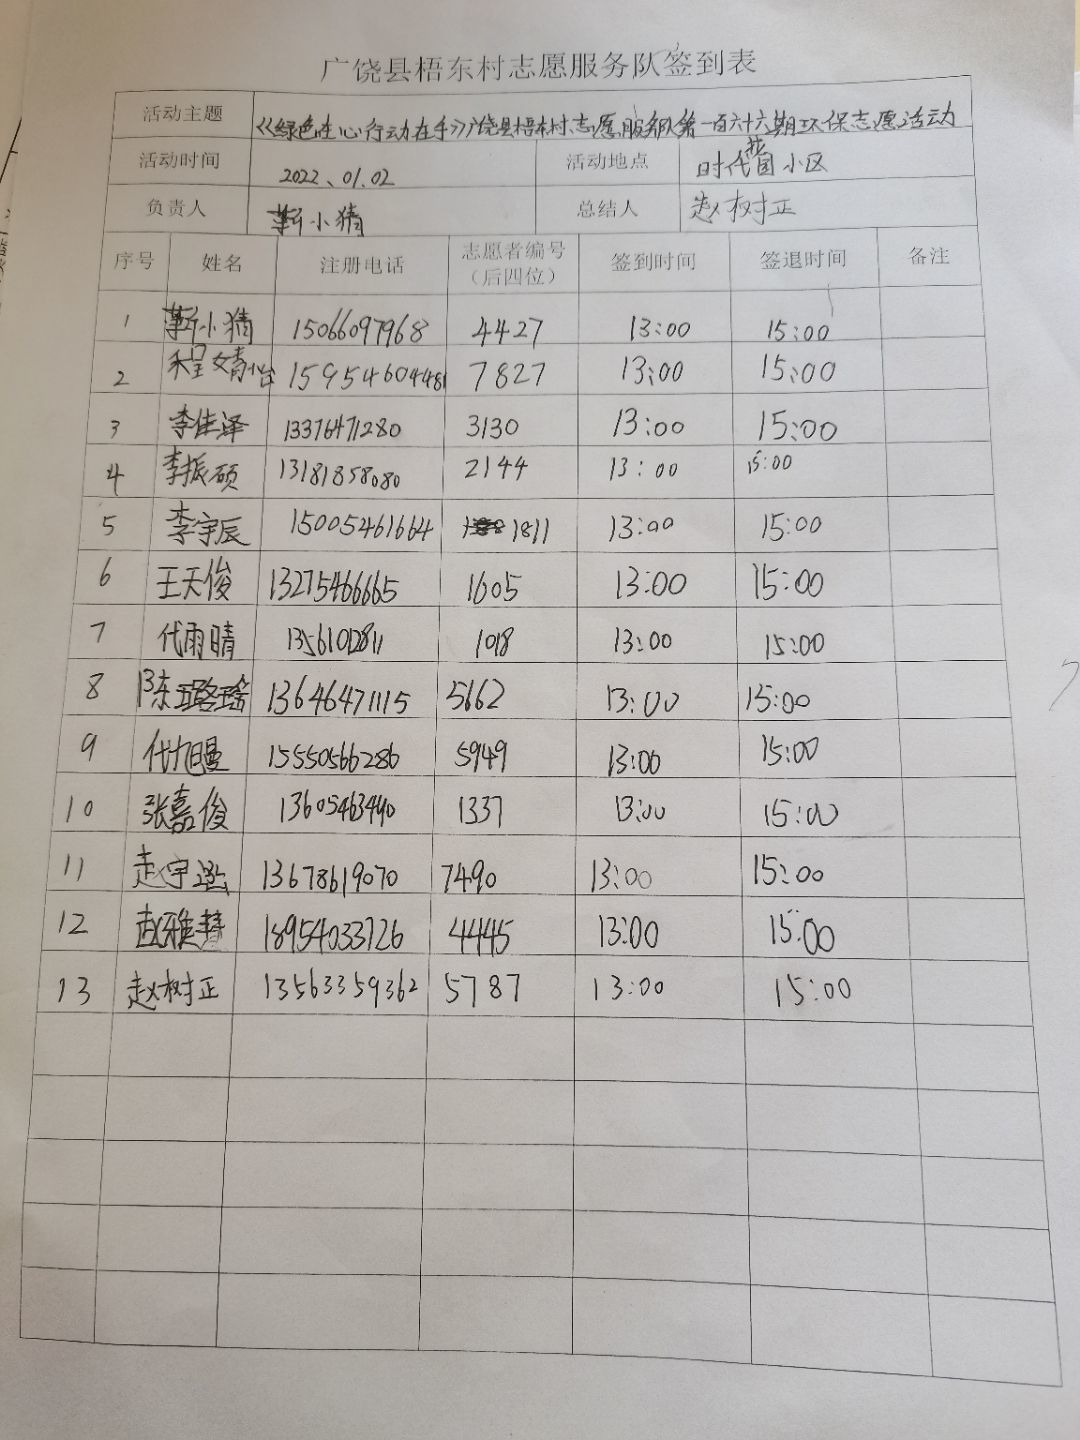 广饶县梧东村志愿服务队签到表
活动主题 《绿色在心行动在手》广饶县梧东村志愿服务队第一百六十六期环保志愿活动
活动时间 2022、01.02 活动地点 时代花园小区
负责人 靳小猜 总结人 赵树正
序号 姓名 注册电话 志愿者编号（后四位） 签到时间 签退时间 备注
1 靳小猜 15066097968 4427 13:00 15:00
2 程婧怡 15954604481 7827 13:00 15:00
3 李佳泽 13376471280 3130 13:00 15:00
4 李振硕 13181858080 2144 13:00 15:00
5 李宇辰 15005461664 1811 13:00 15:00
6 王天俊 13275466665 1605 13:00 15:00
7 代雨晴 1018 13:00 15:00
8 陈璐瑶 13646471115 5662 13:00 15:00
9 代旭曼 15550566286 5949 13:00 15:00
10 张嘉俊 13605463490 1337 13:00 15:00
11 赵宇泓 13678619070 7490 13:00 15:00
12 赵雅慧 18954033726 4445 13:00 15:00
13 赵树正 13563359362 5787 13:00 15:00